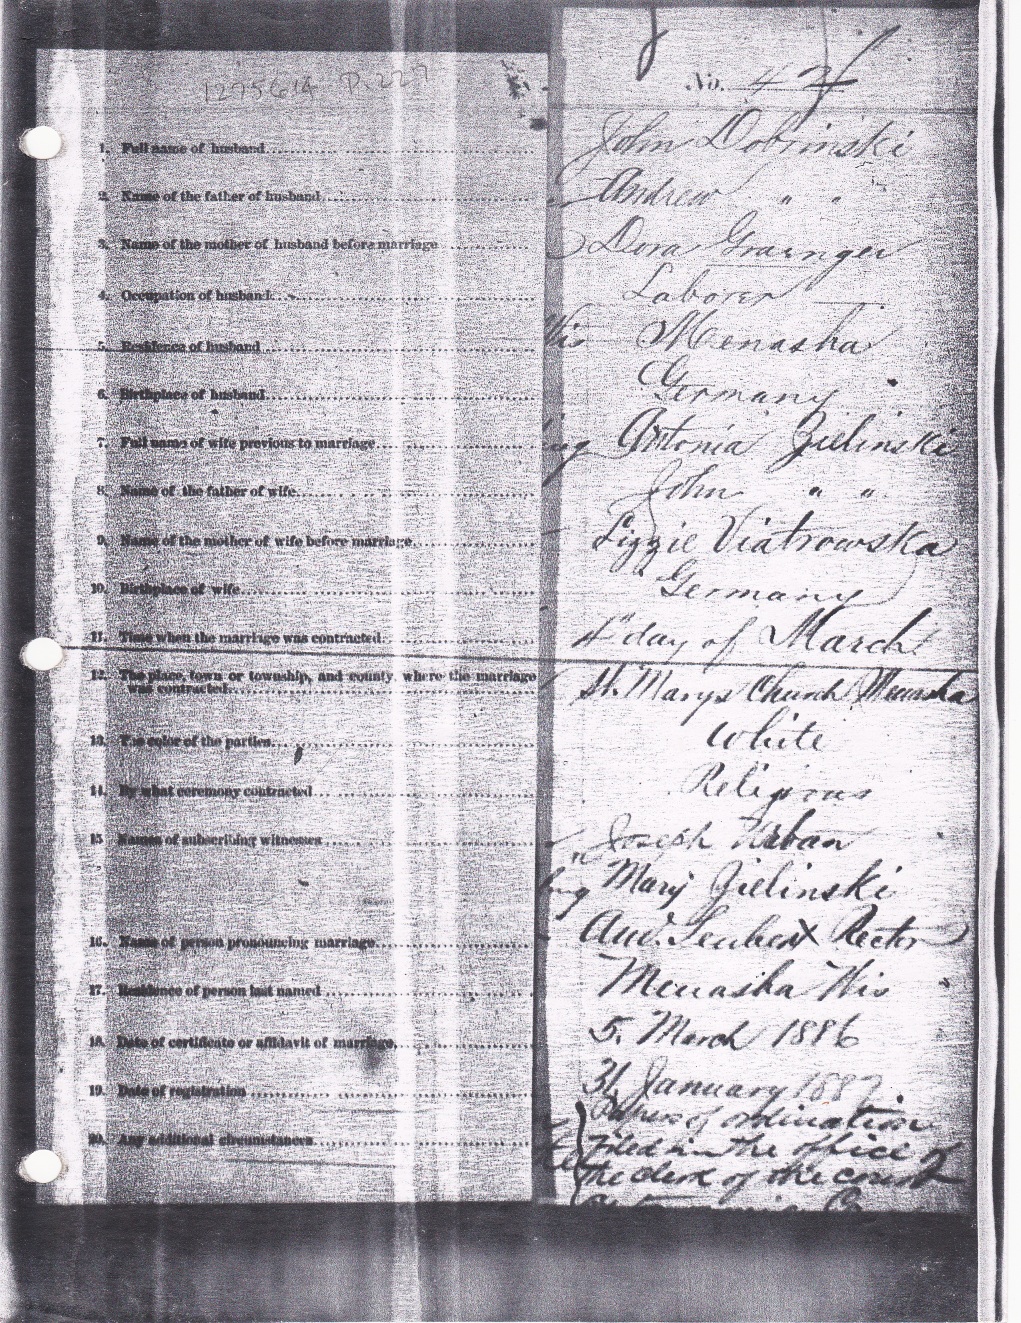 1275614 P. 227
No. 42
1. Full name of husband John Dobrinski
2. Name of the father of husband Andrew " "
3. Name of the mother of husband before marriage Dora Grainger
4. Occupation of husband Laborer
5. Residence of husband Menasha
6. Birthplace of husband Germany
7. Full name of wife previous to marriage Antonia Zielinski
8. Name of the father of wife John " "
9. Name of the mother of wife before marriage Lizzie Viatrowska
10. Birthplace of wife Germany
11. Time when the marriage was contracted 4" day of March
12. The place, town or township, and county, where the marriage
was contracted St. Marys Church Menasha
13. The color of the parties White
14. By what ceremony contracted Religious
15 Names of subscribing witnesses Joseph Urban
Mary Zielinski
16. Name of person pronouncing marriage Rector
17. Residence of person last named Menasha Wis
18. Date of certificate or affidavit of marriage 5. March 1886
19. Date of registration 31. January 1887
Papers of ordination
20. Any additional circumstances filed in the office of
the clerk of the court